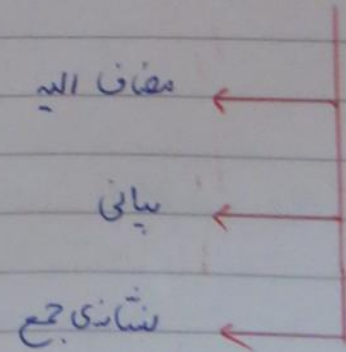 مضاف الیه
بیانی
نشانه‌ی جمع